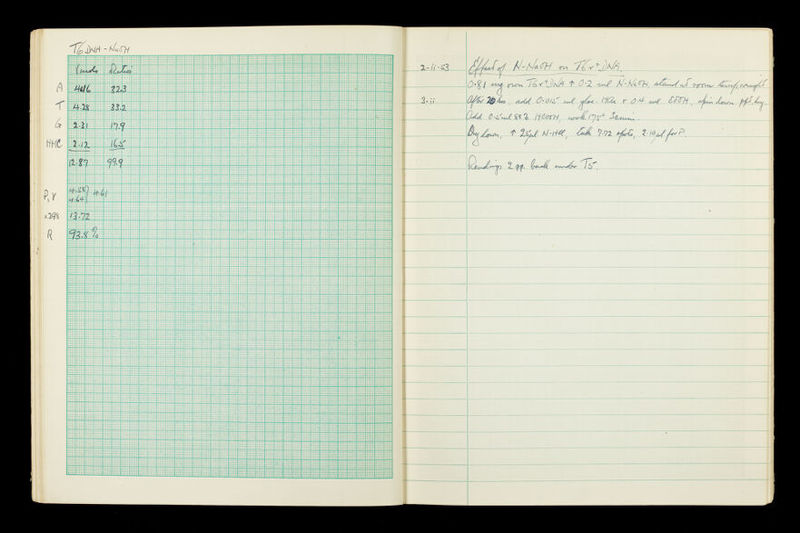 T6 DNA - NaOH
μmols Ratio
A 4.16 32.3
T 4.28 33.2
G 2.31 17.9
HMC 2.12 16.5
12.87 99.9
P, γ 4.58 4.61
4.64
×2.98 13.72
R 93.8%
2-11-53 Effect of N-NaOH on T6r+ DNA.
0.81 mg own T6r+ DNA + 0.2 ml N-NaOH, stand at room temp. overnight
3.ii After 20 hrs. add 0.015 ml glac. + 0.4 ml EtOH, spin down ppt, dry.
Add 0.5 ml 88% HCOOH, 175° 30 min.
Dry down, + N-HCl, take spots, 2.10 μl for P.
Readings 2 pp. back under T5.